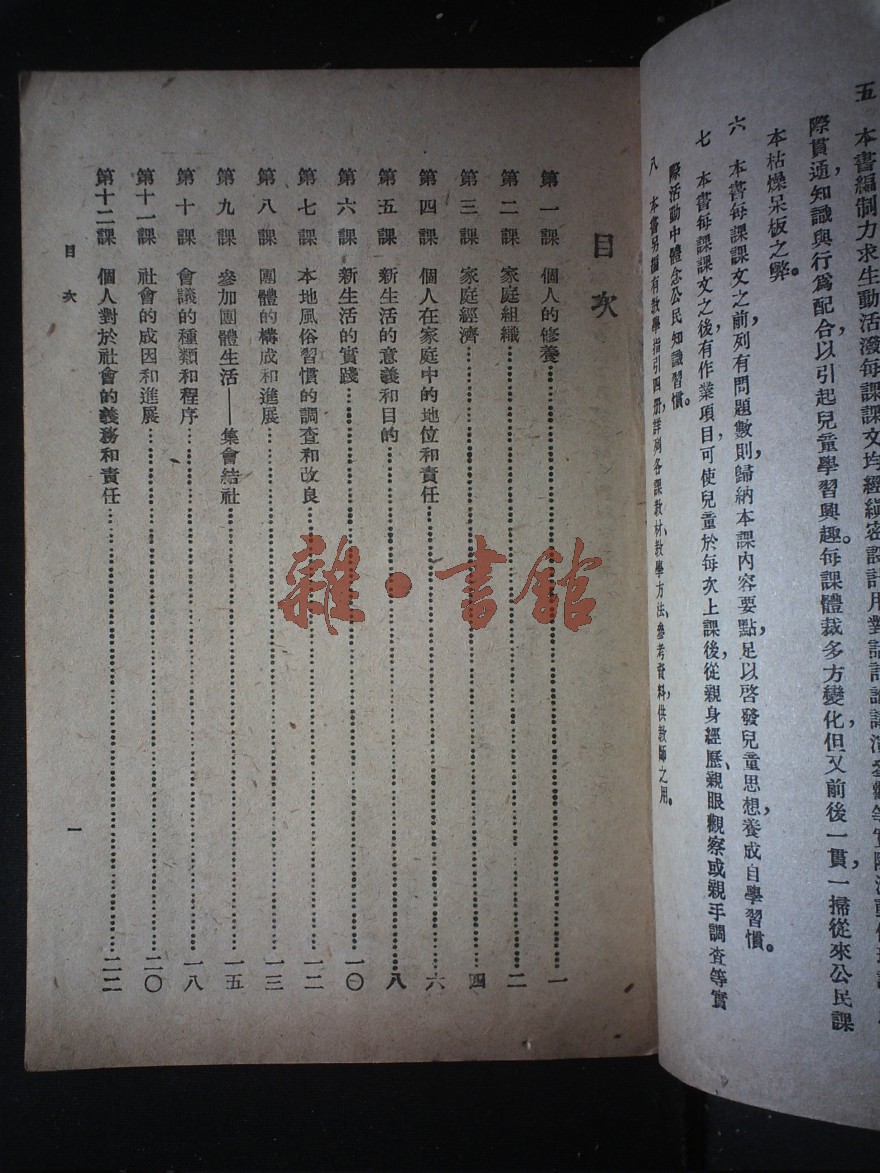 五　本書編制力求生動活潑每課課文均經縝密設計用對話討論講演參觀等實際活動
際貫通，知識與行爲配合以引起兒童學習興趣。每課體裁多方變化，但又前後一貫，一掃從來公民課
本枯燥呆板之弊。
六　本書每課課文之前列有問題數則，歸納本課內容要點，足以啓發兒童思想，養成自學習慣。
七　本書每課課文之後，有作業項目，可使兒童於每次上課後，從親身經歷、親眼觀察或親手調查等實
際活動中體念公民知識習慣。
八　本書另編有教學指引四册，詳列各課教材、教學方法、參考資料，供教師之用。
目次
第一課　個人的修養……一
第二課　家庭組織……二
第三課　家庭經濟……四
第四課　個人在家庭中的地位和責任……六
第五課　新生活的意義和目的……八
第六課　新生活的實踐……一〇
第七課　本地風俗習慣的調查和改良……一二
第八課　團體的構成和進展……一三
第九課　參加團體生活——集會結社……一五
第十課　會議的種類和程序……一八
第十一課　社會的成因和進展……二〇
第十二課　個人對於社會的義務和責任……二二
目次
一
雜·書館